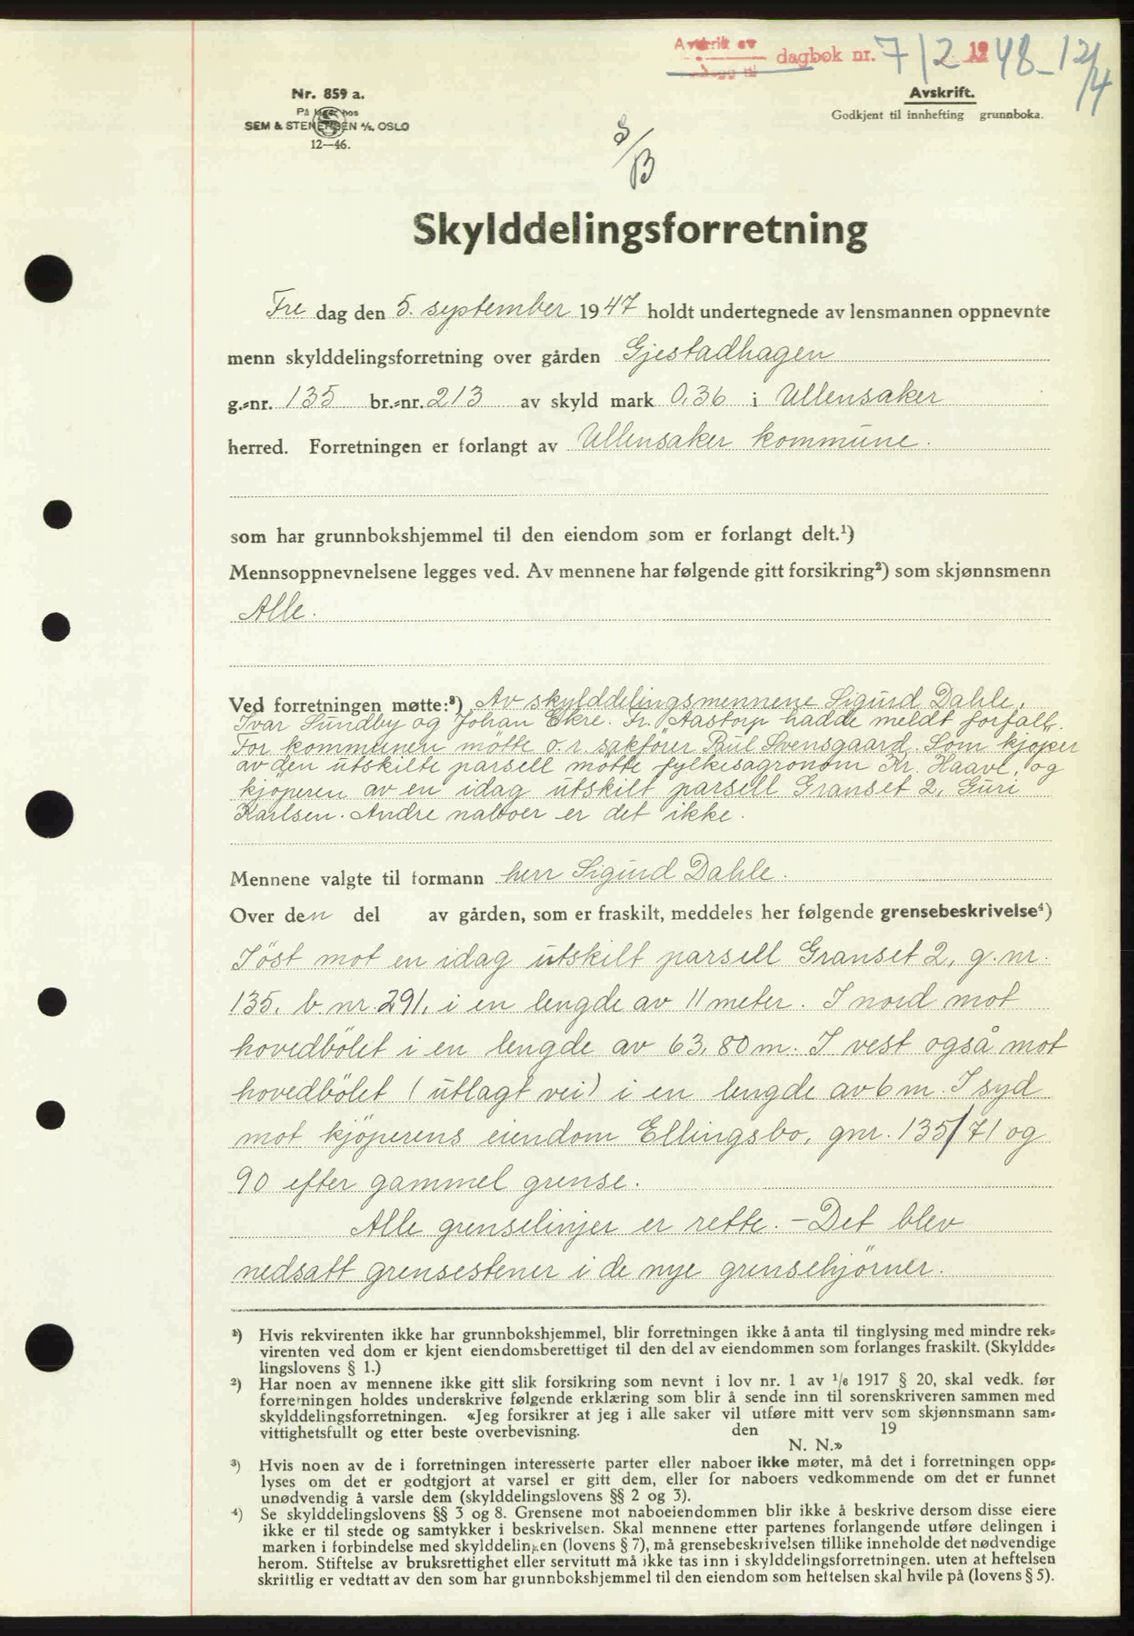 Avskrift av dagbok nr. 712 1948 - 12/4
Nr. 859 a.
På lager hos
SEM & STENERSEN A/S, OSLO
12—46.
Avskrift.
Godkjent til innhefting grunnboka.
S/B
Skylddelingsforretning
Fre dag den 5. september 1947 holdt undertegnede av lensmannen oppnevnte
menn skylddelingsforretning over gården Gjestadhagen
g.-nr. 135 br.-nr. 213 av skyld mark 0,36 i Ullensaker
herred. Forretningen er forlangt av Ullensaker kommune.
som har grunnbokshjemmel til den eiendom som er forlangt delt.¹)
Mennsoppnevnelsene legges ved. Av mennene har følgende gitt forsikring²) som skjønnsmenn
Alle.
Ved forretningen møtte:³) Av skylddelingsmennene Sigurd Dahle,
Ivar Sundby og Johan Ekre. Fr. Aastorp hadde meldt forfall.
For kommunen mötte o.r. sakförer Paul Svensgaard. Som kjöper
av den utskilte parsell mötte fylkesagronom Kr. Haavl, og
kjöperen av en idag utskilt parsell Granset 2, Guri
Karlsen. Andre naboer er det ikke.
Mennene valgte til formann herr Sigurd Dahle.
Over den del av gården, som er fraskilt, meddeles her følgende grensebeskrivelse⁴)
I öst mot en idag utskilt parsell Granset 2, g.nr.
135, b.nr. 291, i en lengde av 11 meter. I nord mot
hovedbölet i en lengde av 63,80 m. I vest også mot
hovedbölet (utlagt vei) i en lengde av 6 m. I syd
mot kjöperens eiendom Ellingsbo, gnr. 135/71 og
90 efter gammel grense.
Alle grenselinjer er rette. - Det blev
nedsatt grensestener i de nye grensehjörner.
¹) Hvis rekvirenten ikke har grunnbokshjemmel, blir forretningen ikke å anta til tinglysing med mindre rek-
virenten ved dom er kjent eiendomsberettiget til den del av eiendommen som forlanges fraskilt. (Skyldde-
lingslovens § 1.)
²) Har noen av mennene ikke gitt slik forsikring som nevnt i lov nr. 1 av 1/6 1917 § 20, skal vedk. før
forretningen holdes underskrive følgende erklæring som blir å sende inn til sorenskriveren sammen med
skylddelingsforretningen. «Jeg forsikrer at jeg i alle saker vil utføre mitt verv som skjønnsmann sam-
vittighetsfullt og etter beste overbevisning. den 19
N. N.»
³) Hvis noen av de i forretningen interesserte parter eller naboer ikke møter, må det i forretningen opp-
lyses om det er godtgjort at varsel er gitt dem, eller for naboers vedkommende om det er funnet
unødvendig å varsle dem (skylddelingslovens §§ 2 og 3).
⁴) Se skylddelingslovens §§ 3 og 8. Grensene mot naboeiendommen blir ikke å beskrive dersom disse eiere
ikke er til stede og samtykker i beskrivelsen. Skal mennene etter partenes forlangende utføre delingen i
marken i forbindelse med skylddelingen (lovens § 7), må grensebeskrivelsen tillike inneholde det nødvendige
herom. Stiftelse av bruksrettighet eller servitutt må ikke tas inn i skylddelingsforretningen. uten at heftelsen
skriftlig er vedtatt av den som har grunnbokshjemmel til den eiendom som heftelsen skal hvile på (lovens § 5).